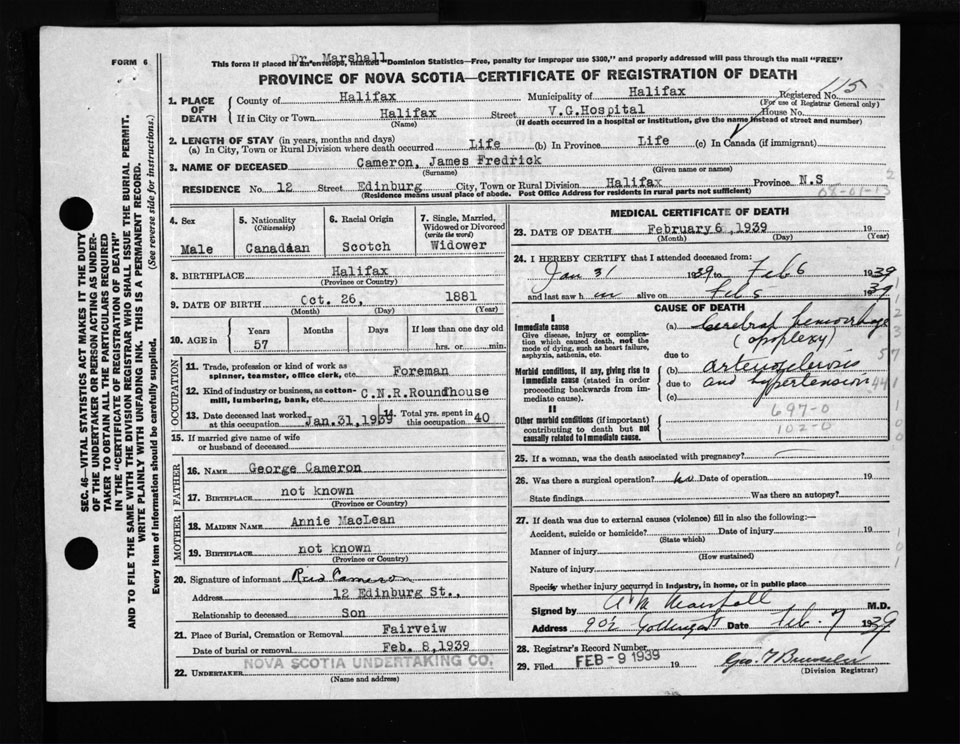 FORM 6
Dr. Marshall
This form if placed in an envelope, marked "Dominion Statistics—Free, penalty for improper use $300," and properly addressed will pass through the mail "FREE"
PROVINCE OF NOVA SCOTIA—CERTIFICATE OF REGISTRATION OF DEATH
115
1. PLACE OF DEATH
County of Halifax Municipality of Halifax Registered No.
(For use of Registrar General only)
If in City or Town Halifax Street V.G.Hospital House No.
(Name) (If death occurred in a hospital or institution, give the name instead of street and number)
2. LENGTH OF STAY (in years, months and days)
(a) In City, Town or Rural Division where death occurred Life (b) In Province Life (c) In Canada (if immigrant)
3. NAME OF DECEASED Cameron, James Fredrick
(Surname) (Given name or names)
RESIDENCE No. 12 Street Edinburg City, Town or Rural Division Halifax Province N.S
(Residence means usual place of abode. Post Office Address for residents in rural parts not sufficient)
2
08-01-13
SEC. 46—VITAL STATISTICS ACT MAKES IT THE DUTY
OF THE UNDERTAKER OR PERSON ACTING AS UNDER-
TAKER TO OBTAIN ALL THE PARTICULARS REQUIRED
IN THE "CERTIFICATE OF REGISTRATION OF DEATH"
AND TO FILE THE SAME WITH THE DIVISION REGISTRAR WHO SHALL ISSUE THE BURIAL PERMIT.
WRITE PLAINLY WITH UNFADING INK. THIS IS A PERMANENT RECORD.
Every item of Information should be carefully supplied. (See reverse side for instructions.)
4. Sex
Male
5. Nationality
(Citizenship)
Canadian
6. Racial Origin
Scotch
7. Single, Married,
Widowed or Divorced
(write the word)
Widower
8. BIRTHPLACE Halifax
(Province or Country)
9. DATE OF BIRTH Oct. 26, 1881
(Month) (Day) (Year)
10. AGE in
Years Months Days If less than one day old
57 hrs. or min.
OCCUPATION
11. Trade, profession or kind of work as
spinner, teamster, office clerk, etc. Foreman
12. Kind of industry or business, as cotton-
mill, lumbering, bank, etc. C.N.R.Roundhouse
13. Date deceased last worked
at this occupation Jan.31,1939
14. Total yrs. spent in
this occupation 40
15. If married give name of wife
or husband of deceased
FATHER
16. NAME George Cameron
17. BIRTHPLACE not known
(Province or Country)
MOTHER
18. MAIDEN NAME Annie MacLean
19. BIRTHPLACE not known
(Province or Country)
20. Signature of informant Cameron
Address 12 Edinburg St.,
Relationship to deceased Son
21. Place of Burial, Cremation or Removal Fairveiw
Date of burial or removal Feb. 8,1939
22. UNDERTAKER NOVA SCOTIA UNDERTAKING CO.
(Name and address)
MEDICAL CERTIFICATE OF DEATH
23. DATE OF DEATH February 6 ,1939 19
(Month) (Day) (Year)
24. I HEREBY CERTIFY that I attended deceased from:
Jan 31 1939 to Feb 6 1939
and last saw h im alive on Feb 5 1939
CAUSE OF DEATH
I
Immediate cause
Give disease, injury or complica-
tion which caused death, not the
mode of dying, such as heart failure,
asphyxia, asthenia, etc.
(a) Cerebral hemorrhage
(apoplexy)
due to
Morbid conditions, if any, giving rise to
immediate cause (stated in order
proceeding backwards from im-
mediate cause).
(b) arteriosclerosis
due to and hypertension
(c)
697-0
102-0
II
Other morbid conditions (if important)
contributing to death but not
causally related to immediate cause.
25. If a woman, was the death associated with pregnancy?
26. Was there a surgical operation? no Date of operation 19
State findings Was there an autopsy?
27. If death was due to external causes (violence) fill in also the following:—
Accident, suicide or homicide? Date of injury 19
(State which)
Manner of injury
(How sustained)
Nature of injury
Specify whether injury occurred in industry, in home, or in public place
Signed by A M Marshall M.D.
Address 90½ Gottingen St Date Feb. 7 1939
28. Registrar's Record Number
29. Filed FEB -9 1939 19
(Division Registrar)